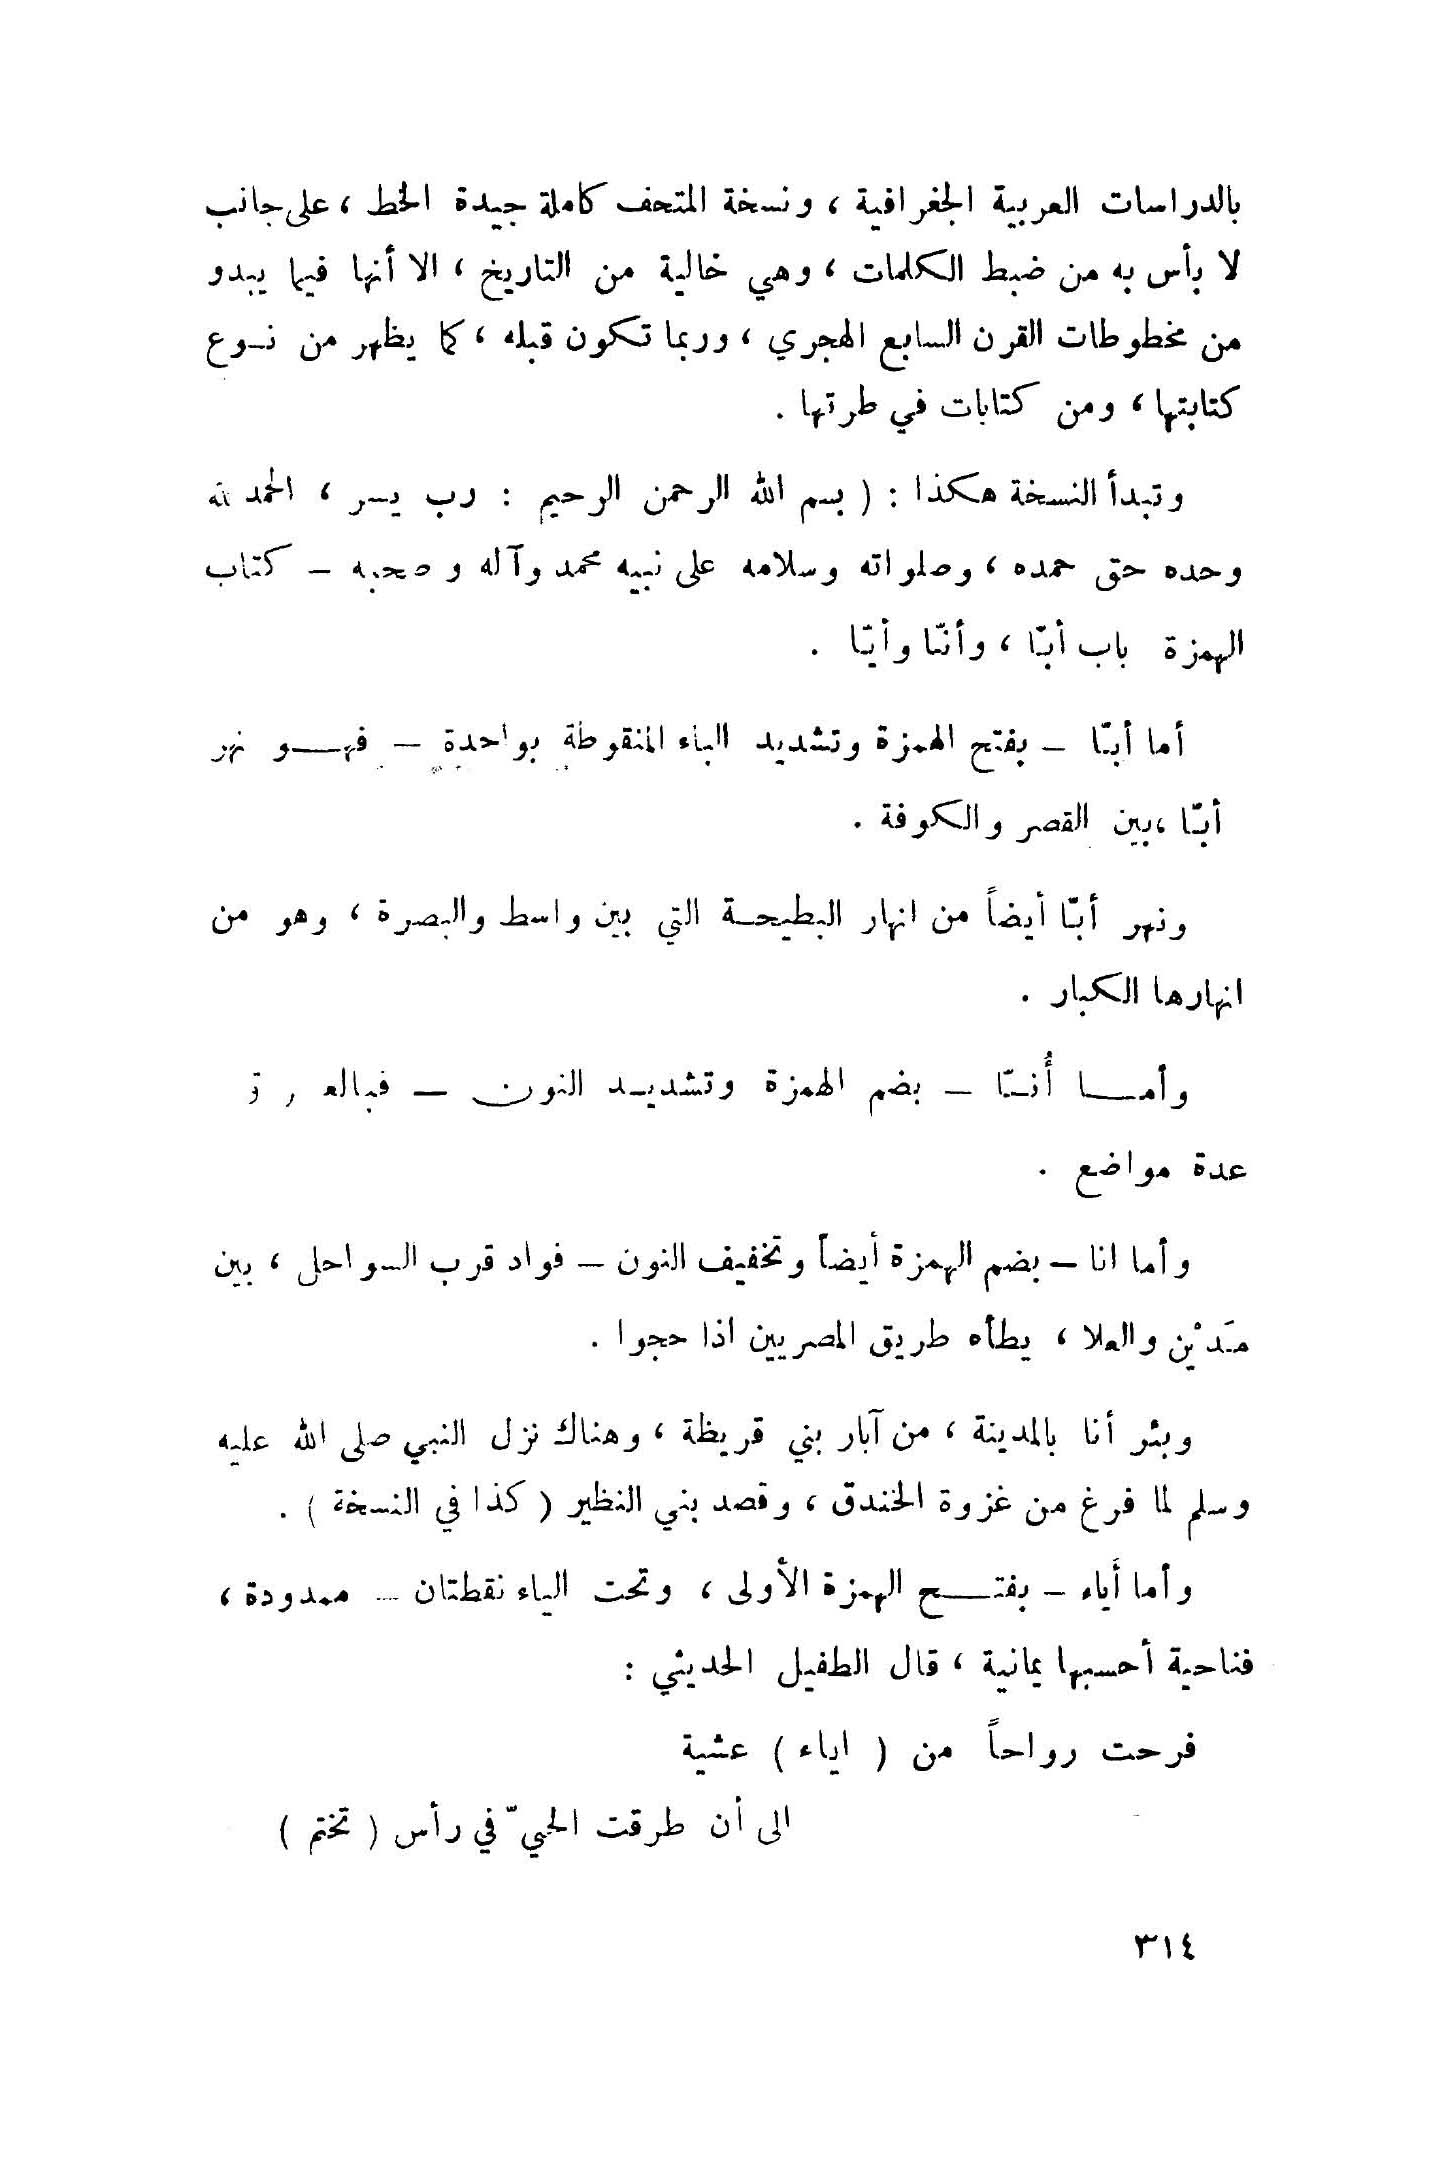 بالدراسات العربية الجغرافية ، ونسخة المتحف كاملة جيدة الخط ، على جانب
لا بأس به من ضبط الكلمات ، وهي خالية من التاريخ ، الا أنها فيما يبدو
من مخطوطات القرن السابع الهجري ، وربما تكون قبله ، كما يظهر من نوع
كتابتها ، ومن كتابات في طرتها .
وتبدأ النسخة هكذا : ( بسم الله الرحمن الرحيم : رب يسر ، الحمد لله
وحده حق حمده ، وصلواته وسلامه على نبيه محمد وآله وصحبه – كتاب
الهمزة باب أبّا ، وأنّا وأيّا .
أما أبّا – بفتح الهمزة وتشديد الباء المنقوطة بواحدة – فهو نهر
أبّا ، بين القصر والكوفة .
ونهر أبّا أيضاً من انهار البطيحة التي بين واسط والبصرة ، وهو من
انهارها الكبار .
وأما أُنّا – بضم الهمزة وتشديد النون –
عدة مواضع .
وأما انا – بضم الهمزة أيضاً وتخفيف النون – فواد قرب السواحل ، بين
مَدْين والعلا ، يطأه طريق المصريين اذا حجوا .
وبئر أنا بالمدينة ، من آبار بني قريظة ، وهناك نزل النبي صلى الله عليه
وسلم لما فرغ من غزوة الخندق ، وقصد بني النظير ( كذا في النسخة ) .
وأما أياء – بفتح الهمزة الأولى ، وتحت الياء نقطتان – ممدودة ،
فناحية أحسبها يمانية ، قال الطفيل الحديثي :
فرحت رواحاً من ( اياء ) عشية
الى أن طرقت الحيّ في رأس ( تختم )
٣١٤